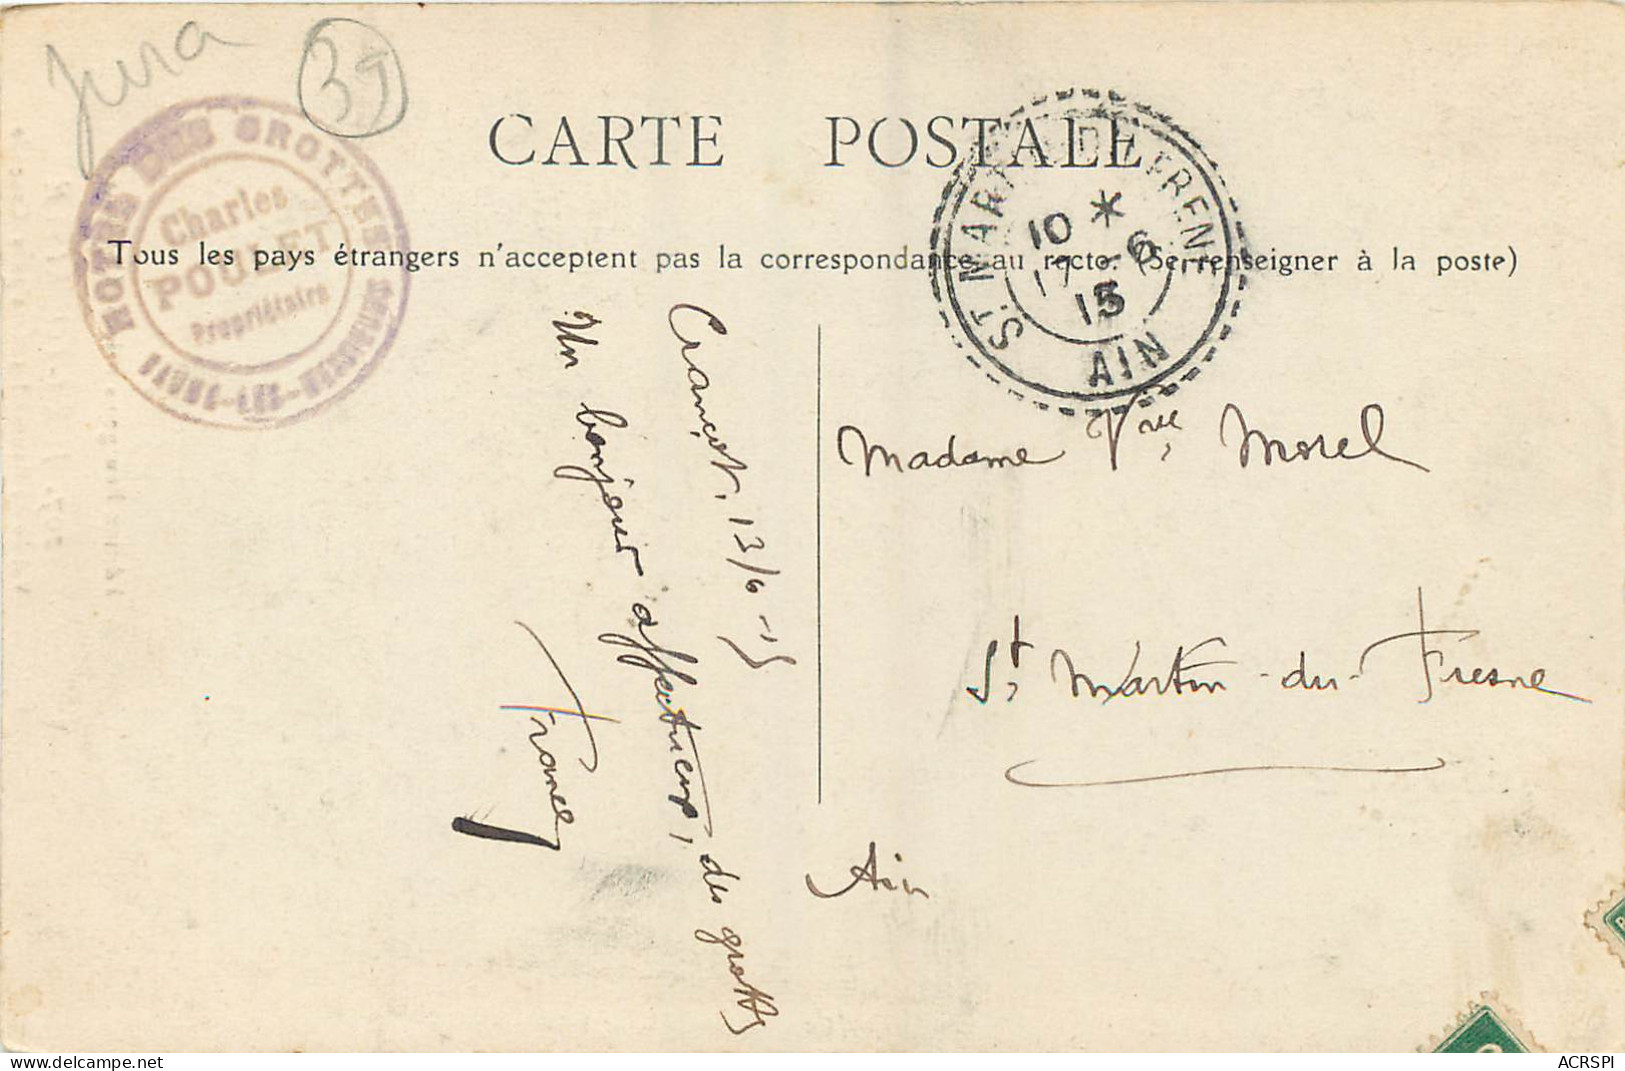 Jura
39
HOTEL DES GROTTES
Charles
POULET
Propriétaire
CARTE POSTALE
ST MARTIN-DU-FRENE
10 *
17 -6
15
AIN
Tous les pays étrangers n'acceptent pas la correspondance au recto. (Se renseigner à la poste)
Crançot, 13/6 -15
Un bonjour affectueux, des grottes
Madame Vve, Morel
St, Martin-du-Fresne
Ain
ACRSPI